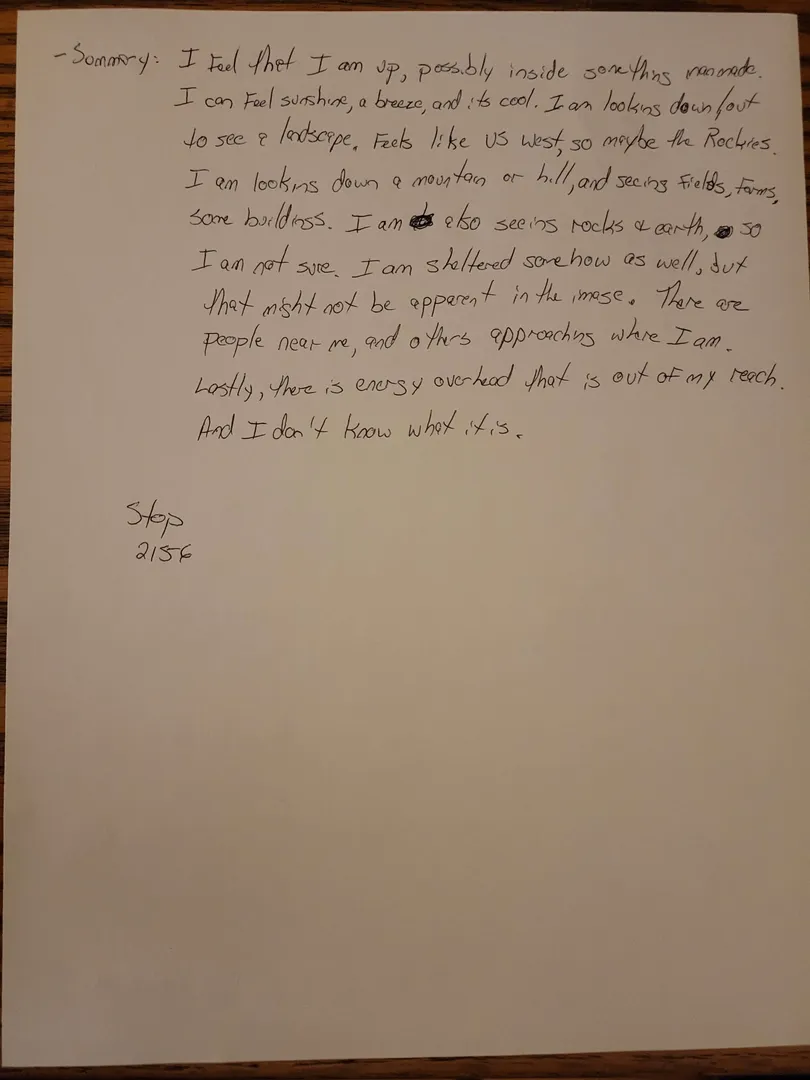 - Summary: I feel that I am up, possibly inside something manmade.
I can feel sunshine, a breeze, and its cool. I am looking down/out
to see a landscape. Feels like US West, so maybe the Rockies.
I am looking down a mountain or hill, and seeing fields, farms,
some buildings. I am also seeing rocks & earth, so
I am not sure. I am sheltered somehow as well, but
that might not be apparent in the image. There are
people near me, and others approaching where I am.
Lastly, there is energy overhead that is out of my reach.
And I don't know what it is.
Stop
2156